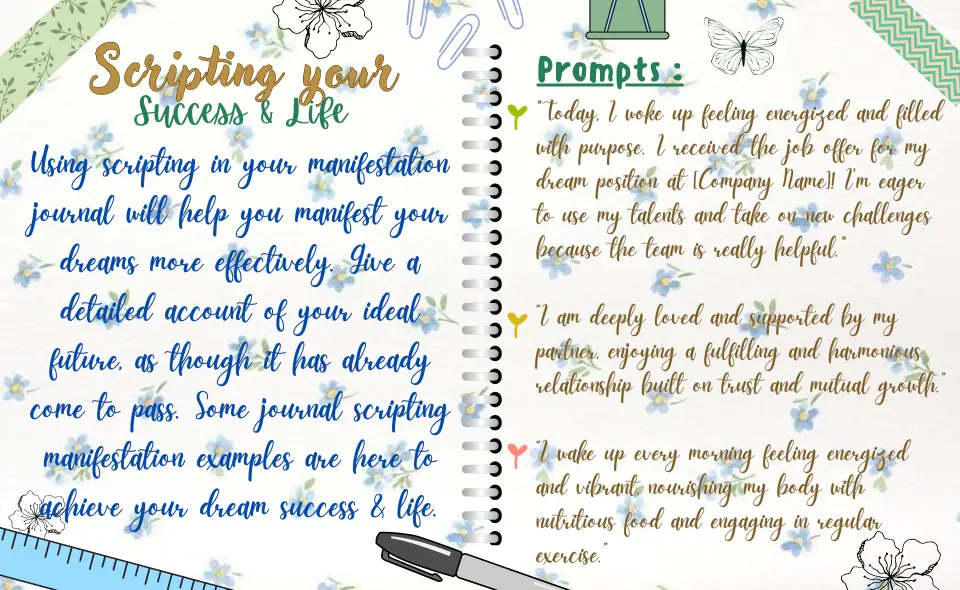 Scripting your
Success & Life
Using scripting in your manifestation
journal will help you manifest your
dreams more effectively. Give a
detailed account of your ideal
future, as though it has already
come to pass. Some journal scripting
manifestation examples are here to
achieve your dream success & life.
Prompts :
"Today, I woke up feeling energized and filled
with purpose. I received the job offer for my
dream position at [Company Name]! I'm eager
to use my talents and take on new challenges
because the team is really helpful."
"I am deeply loved and supported by my
partner, enjoying a fulfilling and harmonious
relationship built on trust and mutual growth."
"I wake up every morning feeling energized
and vibrant, nourishing my body with
nutritious food and engaging in regular
exercise."